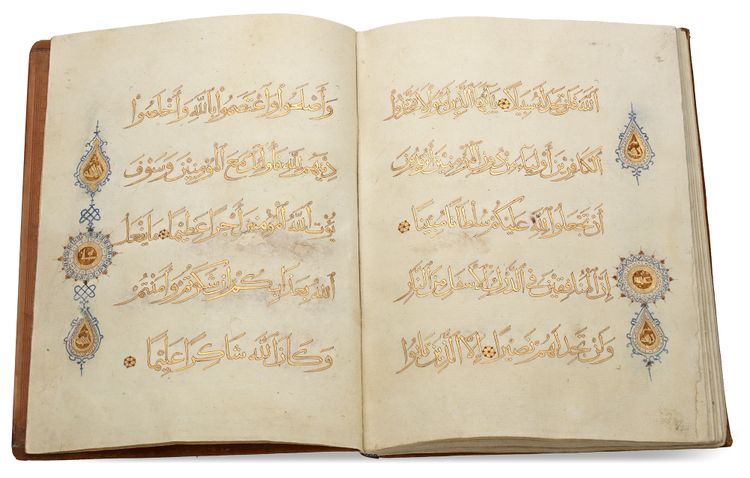 الله فلن تجد له سبيلا يأيها الذين ءامنوا لا تتخذوا
الكافرين أولياء من دون المؤمنين أتريدون
أن تجعلوا لله عليكم سلطانا مبينا
إن المنافقين في الدرك الأسفل من النار
ولن تجد لهم نصيرا إلا الذين تابوا
وأصلحوا واعتصموا بالله وأخلصوا
دينهم لله فأولئك مع المؤمنين وسوف
يؤت الله المؤمنين أجرا عظيما ما يفعل
الله بعذابكم إن شكرتم وآمنتم
وكان الله شاكرا عليما